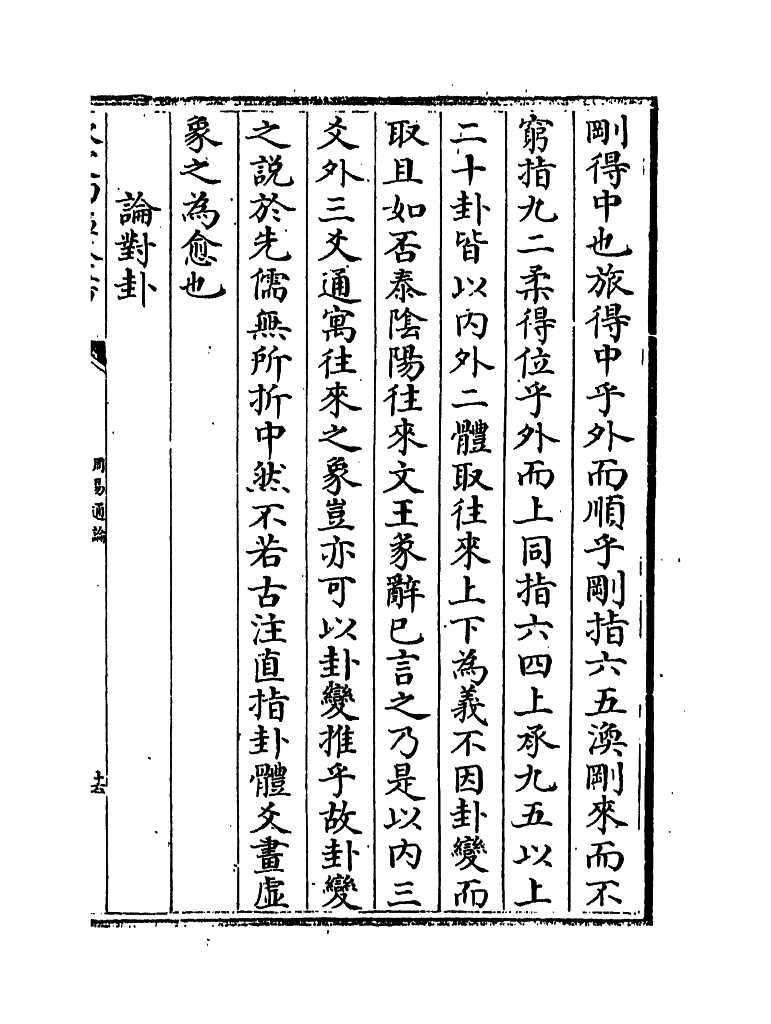 剛得中也旅得中乎外而順乎剛指六五渙剛來而不
窮指九二柔得位乎外而上同指六四上承九五以上
二十卦皆以內外二體取往來上下為義不因卦變而
取且如否泰陰陽往來文王彖辭已言之乃是以內三
爻外三爻通寓往來之象豈亦可以卦變推乎故卦變
之說於先儒無所折中然不若古注直指卦體爻畫虛
象之為愈也
論對卦
周易通論